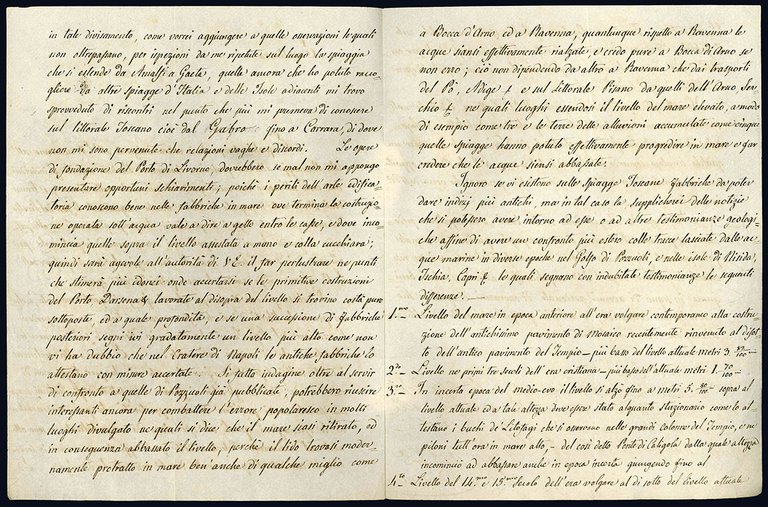 in tale divisamento, come vorrei aggiungere a quelle osservazioni le quali
non oltrepassano, per ispezioni da me ripetute sul luogo la spiaggia
che si estende da Amalfi a Gaeta, quella ancora che ho potuto racco-
gliere da altre spiagge d'Italia e delle Isole adiacenti mi trovo
sprovveduto di riscontri nel punto che più mi premeva di conoscere
sul littorale Toscano cioè dal Gabro fino a Carrara, di dove
non mi sono pervenute che relazioni vaghe e discordi. Le opere
di fondazione del Porto di Livorno, dovrebbero se mal non mi appongo
presentare opportuni schiarimenti; poichè i periti dell'arte edifica-
toria conoscono bene nelle fabbriche in mare ove termina la costruzio-
ne operata sott'acqua vale a dire a getto entro le casse, e dove inco-
mincia quella sopra il livello assestata a mano e colla cucchiara;
quindi sarà agevole all'autorità di V.E. il far perlustrare ne punti
che stimerà più idonei onde accertarsi se le primitive costruzioni
del Porto, Darsena & lavorate al disopra del livello si trovino costà pure
sottoposte, ed a quale profondità, e se una successione di fabbriche
posteriori segni ivi gradatamente un livello più alto come non
vi ha dubbio che nel Cratere di Napoli le antiche fabbriche lo
attestano con misure accertate. Si fatto indagine oltre al servir
di confronto a quelle di Pozzuoli già pubblicate, potrebbero riuscire
interessanti ancora per combattere l'errore popolaresco in molti
luoghi divulgato ne quali si dice che il mare siasi ritirato, ed
in conseguenza abbassato il livello, perchè il lido trovasi moder-
namente protratto in mare ben anche di qualche miglio come
a Bocca d'Arno ed a Ravenna, quantunque rispetto a Ravenna le
acque siansi effettivamente rialzate, e credo pure a Bocca di Arno se
non erro; ciò non dipendendo da altro a Ravenna che dai trasporti
del Pò, Adige & e sul littorale Pisano da quelli dell'Arno, Ser-
chio & ne quali luoghi essendosi il livello del mare elevato, a modo
di esempio come tre e le terre delle alluvioni accumulate come cinque
quelle spiagge hanno potuto effettivamente progredire in mare e far
credere che le acque siensi abbassate.
Ignoro se vi esistono sulle spiagge Toscane fabbriche da poter
dare indizj più antichi, ma in tal caso la supplicherei delle notizie
che si potessero avere intorno ad esse o ad altre testimonianze geologi-
che affine di avere un confronto più esteso colle tracce lasciate dalle ac-
que marine in diverse epoche nel Golfo di Pozzuoli, e nelle isole di Nisida,
Ischia, Capri & le quali segnano con indubitate testimonianze le seguenti
differenze.
1.mo Livello del mare in epoca anteriore all'era volgare contemporanea alla costru-
zione dell'antichissimo pavimento di Mosaico recentemente rinvenuto al disot-
to dell'antico pavimento del Tempio - più basso del livello attuale metri 3
2.do Livello ne primi tre secoli dell'era cristiana - più basso dell'attuale metri 1. 70/100
3.zo In incerta epoca del medio-evo il livello si alzò fino a metri 5. sopra al
livello attuale ed a tale altezza dové essere stato alquanto stazionario come lo at-
testano i buchi de' Litofagi che si osservano nelle grandi colonne del Tempio, e ne
piloni tutt'ora in mare alto, del così detto Ponte di Caligola dalla quale altezza
incominciò ad abbassare anche in epoca incerta giungendo fino al
4.to Livello del 14.mo e 15.mo Secolo dell'era volgare al di sotto del livello attuale